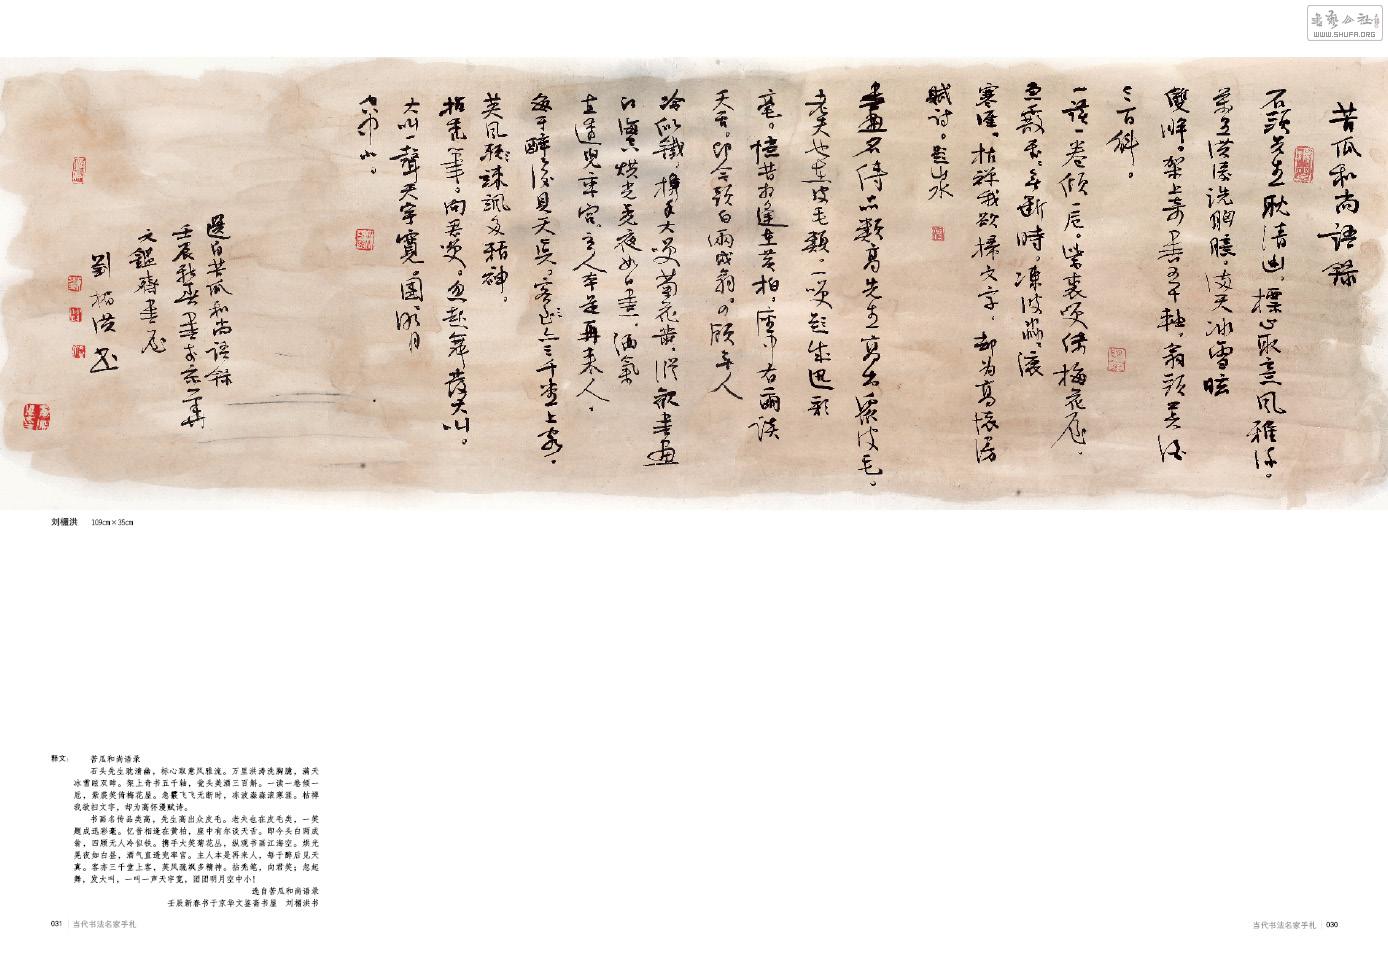 書艺公社
WWW.SHUFA.ORG
苦瓜和尚語錄
石頭先生耽清幽，標心取意風雅流。
萬里洪濤洗胸臆，滿天冰雪眩
雙眸。架上奇書五千軸，甕頭美酒
三百斛。
一讀一卷傾一卮。紫裘笑倚梅花屋，
急霰飛飛無斷時，凍波淼淼滾
寒涯，枯禪我欲掃文字，却为高懷漫
賦詩。題山水
書畫名傳品類高先生高出眾皮毛。
老夫也在皮毛類，一笑題成迅彩
毫。憶昔相逢在黃柏，座中有爾談
天舌。即今頭白兩成翁。四顧無人
冷似鐵，携手大笑菊花叢，縱觀書畫
江海空，烘光晃夜如白晝，酒氣
直透兜率宮。主人本是再來人，
每于醉後見天真。客亦三千堂上客，
英風疏諷多精神。
拈禿筆，向君笑。忽起舞發大叫。
大叫一聲天宇寬。團團明月
空中小。
選自苦瓜和尚語錄
壬辰新春書于京華
文鑑齋書屋
劉楣洪書
刘楣洪 109cm×35cm
释文： 苦瓜和尚语录
石头先生耽清幽，标心取意风雅流。万里洪涛洗胸臆，满天
冰雪眩双眸。架上奇书五千轴，瓮头美酒三百斛。一读一卷倾一
卮，紫裘笑倚梅花屋。急霰飞飞无断时，冻波淼淼滚寒涯。枯禅
我欲扫文字，却为高怀漫赋诗。
书画名传品类高，先生高出众皮毛。老夫也在皮毛类，一笑
题成迅彩毫。忆昔相逢在黄柏，座中有尔谈天舌。即今头白两成
翁，四顾无人冷似铁。携手大笑菊花丛，纵观书画江海空。烘光
晃夜如白昼，酒气直透兜率宫。主人本是再来人，每于醉后见天
真。客亦三千堂上客，英风疏飒多精神。拈秃笔，向君笑；忽起
舞，发大叫，一叫一声天宇宽，团团明月空中小！
选自苦瓜和尚语录
壬辰新春书于京华文鉴斋书屋 刘楣洪书
031 当代书法名家手札
当代书法名家手札 030